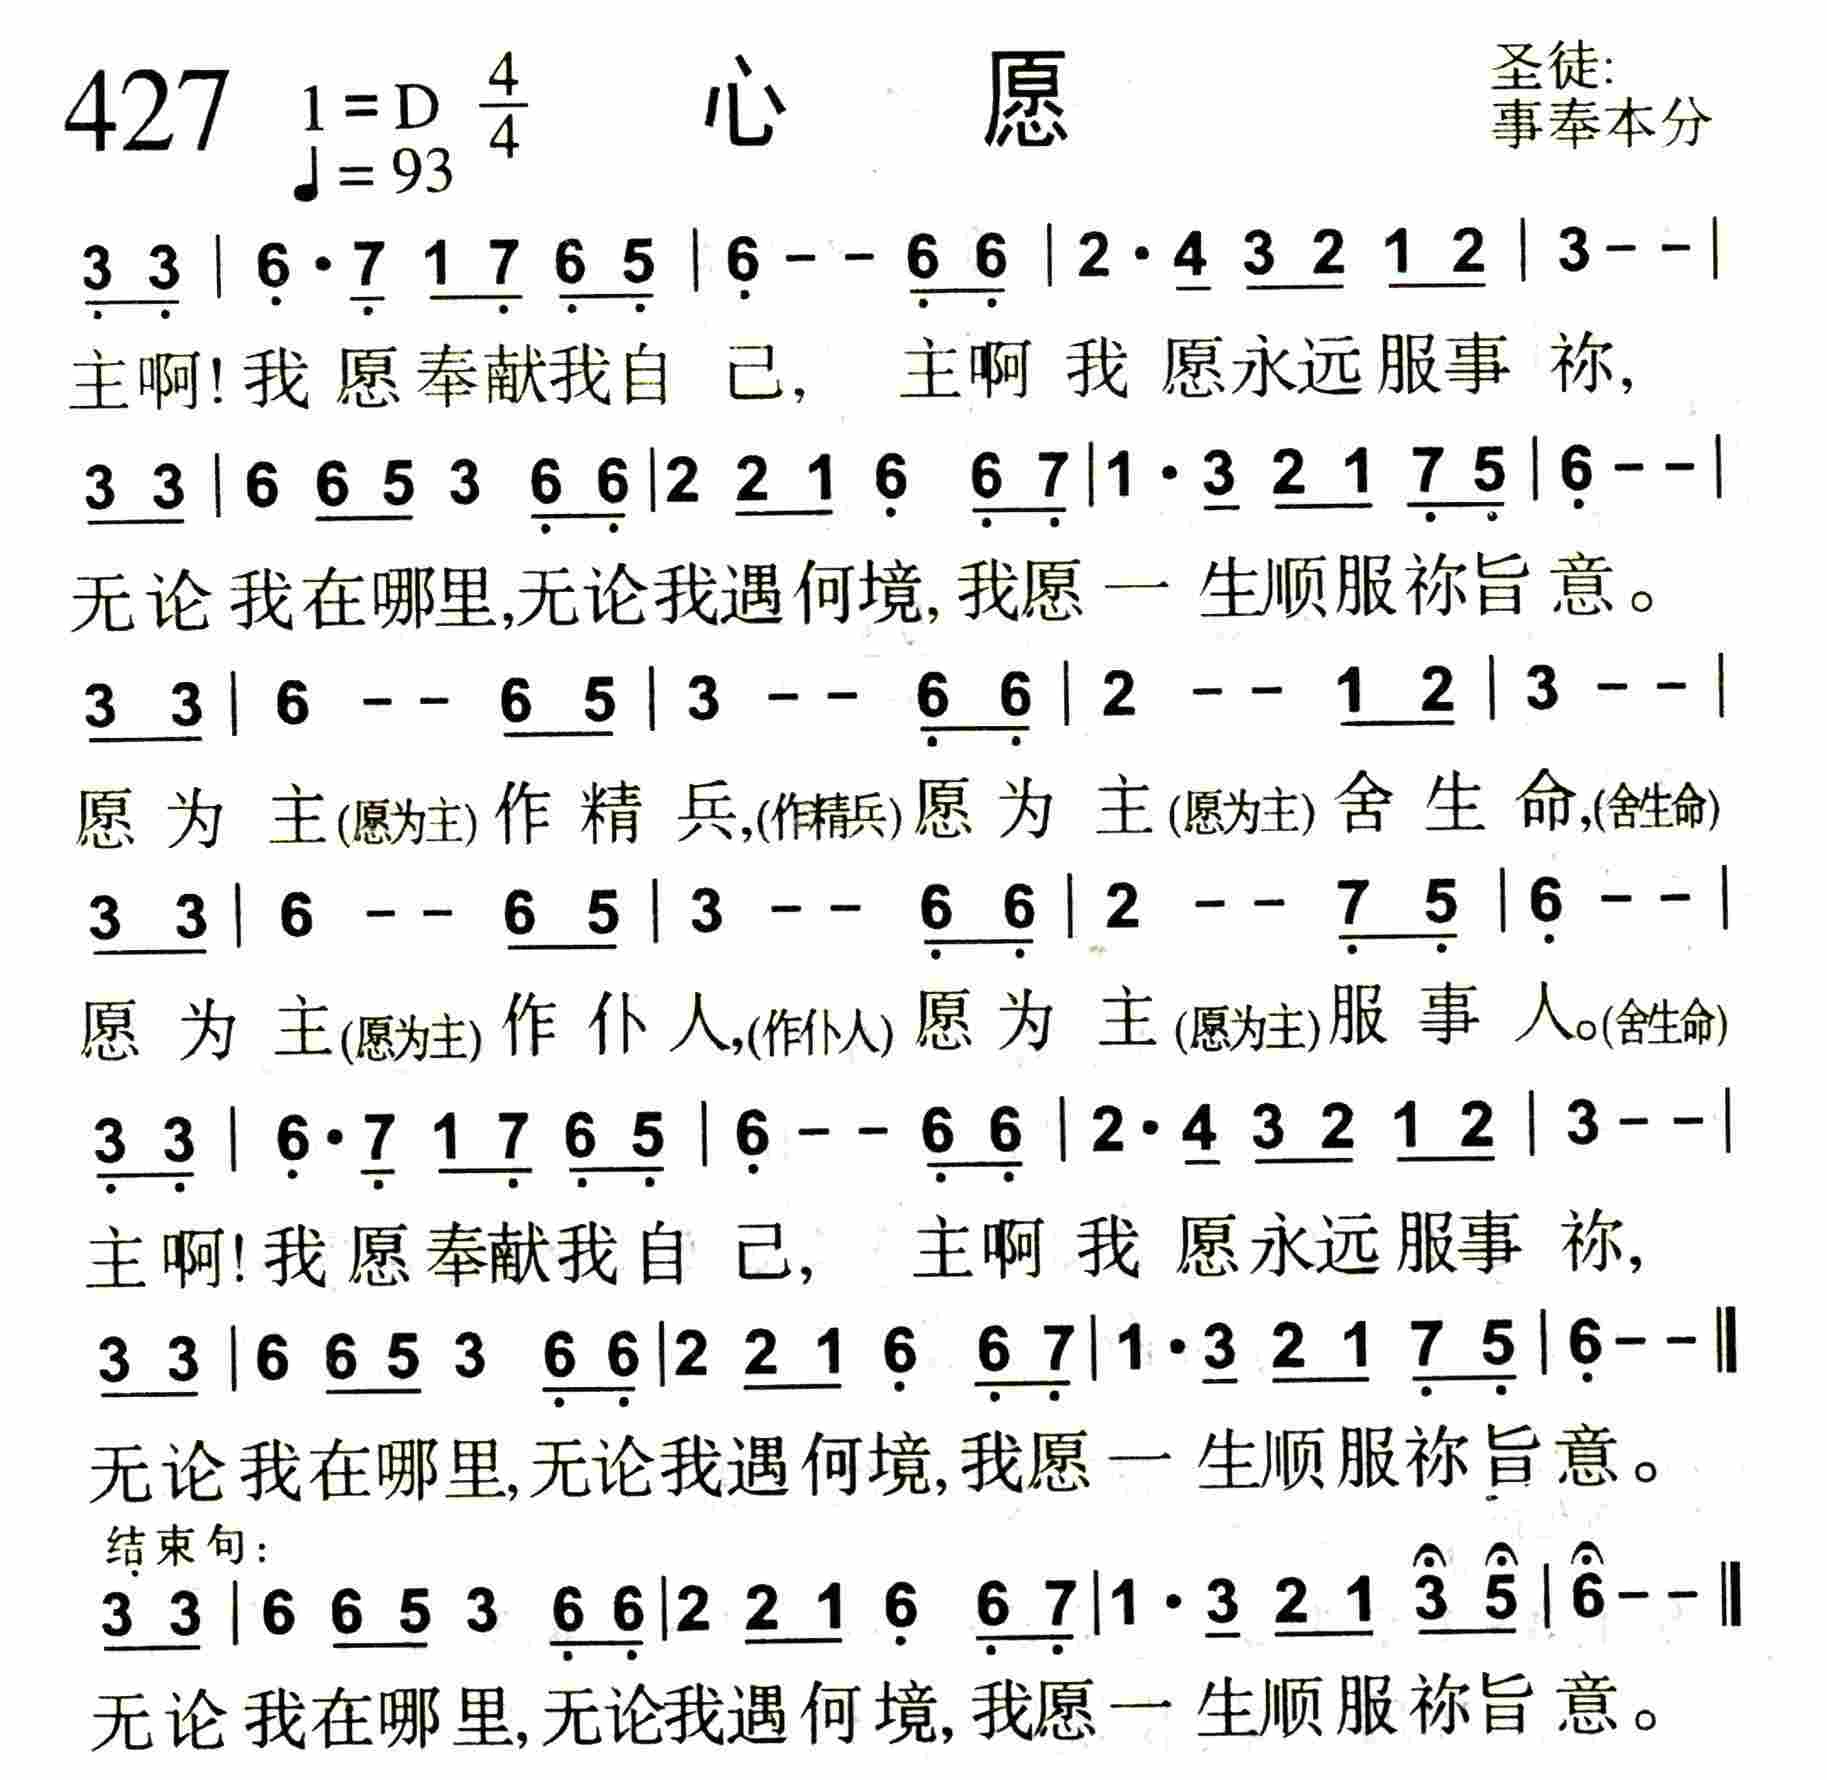 427 1=D 4/4 心 愿 圣徒:
♩=93 事奉本分
3 3 | 6·7 1 7 6 5 | 6 - - 6 6 | 2·4 3 2 1 2 | 3 - - |
主啊!我愿奉献我自己, 主啊我愿永远服事祢,
3 3 | 6 6 5 3 6 6 | 2 2 1 6 6 7 | 1·3 2 1 7 5 | 6 - - |
无论我在哪里,无论我遇何境,我愿一生顺服祢旨意。
3 3 | 6 - - 6 5 | 3 - - 6 6 | 2 - - 1 2 | 3 - - |
愿为主(愿为主)作精兵,(作精兵)愿为主(愿为主)舍生命,(舍生命)
3 3 | 6 - - 6 5 | 3 - - 6 6 | 2 - - 7 5 | 6 - - |
愿为主(愿为主)作仆人,(作仆人)愿为主(愿为主)服事人。(舍生命)
3 3 | 6·7 1 7 6 5 | 6 - - 6 6 | 2·4 3 2 1 2 | 3 - - |
主啊!我愿奉献我自己, 主啊我愿永远服事祢,
3 3 | 6 6 5 3 6 6 | 2 2 1 6 6 7 | 1·3 2 1 7 5 | 6 - - ‖
无论我在哪里,无论我遇何境,我愿一生顺服祢旨意。
结束句:
3 3 | 6 6 5 3 6 6 | 2 2 1 6 6 7 | 1·3 2 1 3 5 | 6 - - ‖
无论我在哪里,无论我遇何境,我愿一生顺服祢旨意。